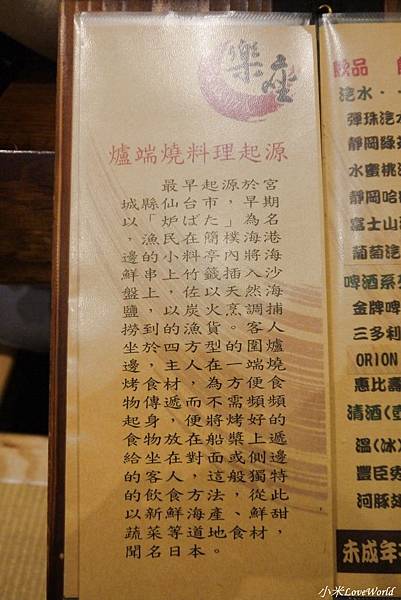 樂座
爐端燒料理起源
最早起源於宮
城縣仙台市，早期
以「炉ばた」為名
，漁民在簡樸海港
邊的小料亭內將海
鮮串上竹籤插入沙
盤上，佐以天然海
鹽，以炭火烹調捕
撈到的漁貨。客人
坐於四方型的圍爐
邊，主人在一端燒
烤食材，為方便食
物傳遞而不需頻頻
起身，便將烤好的
食物放在船槳上遞
給坐在對面或側邊
的客人，這般獨特
的飲食方法，從此
以新鮮海產、鮮甜
蔬菜等道地食材，
聞名日本。
飲品
汽水‧‧
彈珠汽水
靜岡綠茶
水蜜桃
靜岡哈
富士山
葡萄汽
啤酒系列
金牌啤
三多利
ORION
惠比壽
清酒(壺
溫(冰)
豐臣秀
河豚
未成年
小米LoveWorld